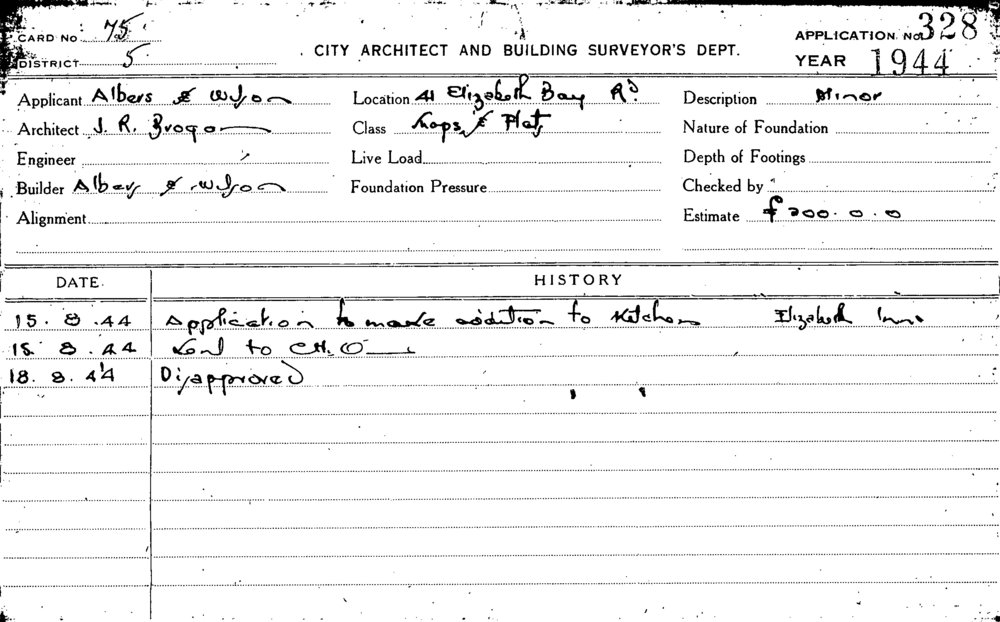 CARD No. 75
APPLICATION No. 328
DISTRICT 5
CITY ARCHITECT AND BUILDING SURVEYOR'S DEPT.
YEAR 1944
Applicant Albers & Wilson Location 41 Elizabeth Bay Rd Description Minor
Architect J. R. Brogan Class Shops & Flats Nature of Foundation
Engineer Live Load Depth of Footings
Builder Albers & Wilson Foundation Pressure Checked by
Alignment Estimate £200.0.0
DATE HISTORY
15.8.44 Application to make addition to Kitchen Elizabeth Inn.
15 8.44 Sent to C.H.O
18.8.44 Disapproved